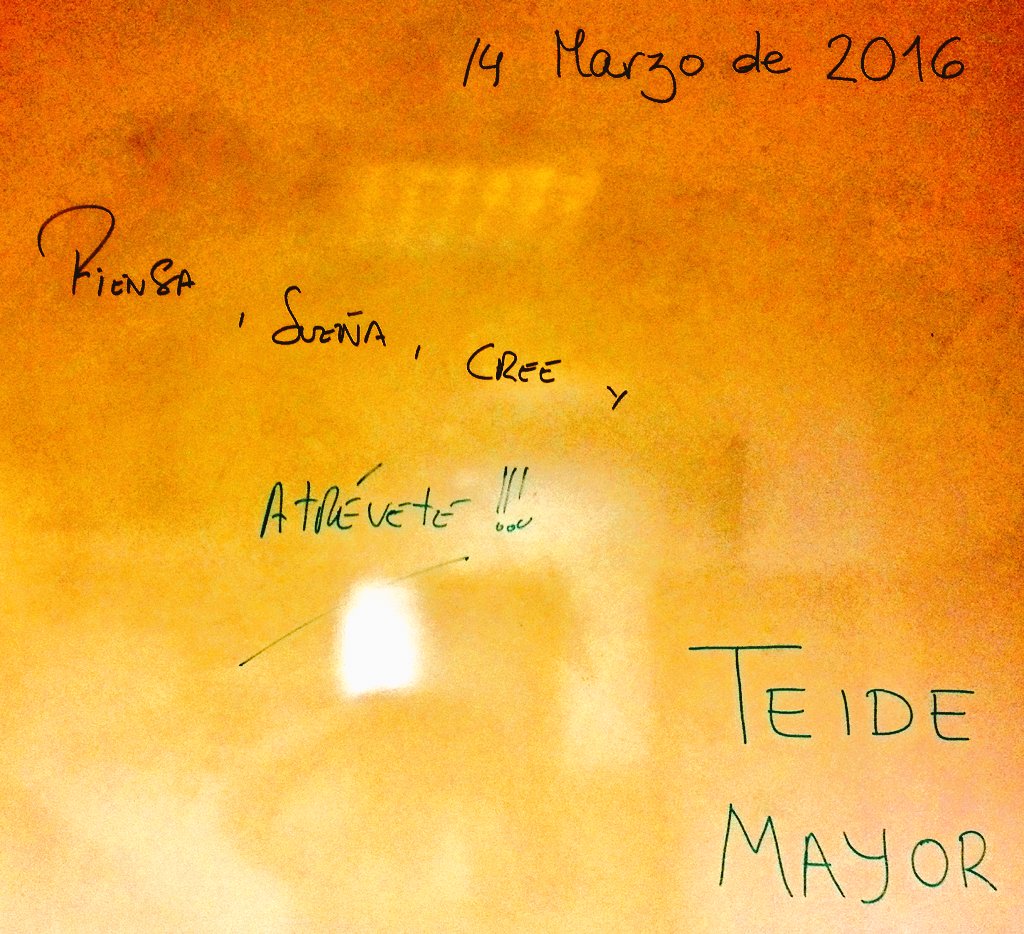 14 Marzo de 2016
Piensa, Sueña, CREE y
AtRÉVEtE !!!
TEIDE
MAYOR